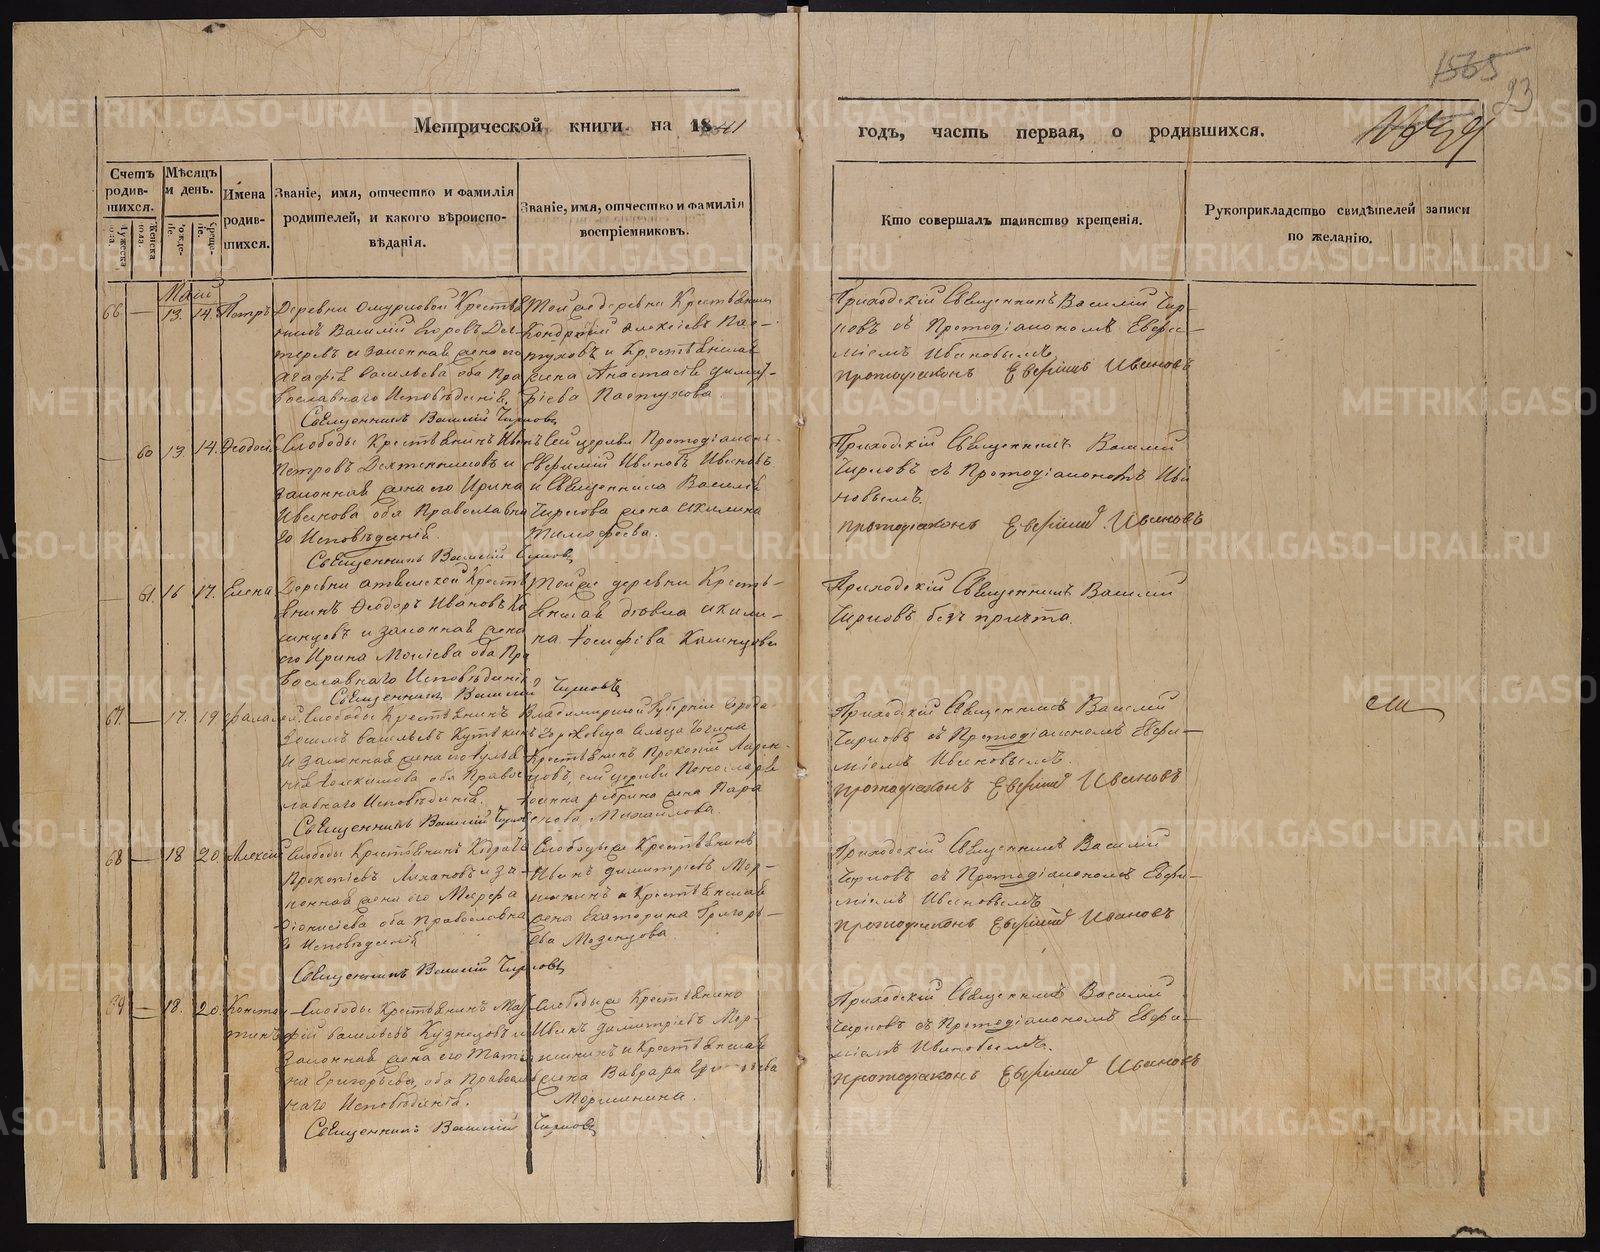 1565
23
Метрической книги на 1841
годъ, часть первая, о родившихся.
Счетъ родив-шихся.
Мужеска пола.
Женска пола.
Мѣсяцъ и день.
Рожде-нія.
Креще-нія.
Имена родив-шихся.
Званіе, имя, отчество и фамилія
родителей, и какого вѣроиспо-
вѣданія.
Званіе, имя, отчество и фамилія
воспріемниковъ.
Кто совершалъ таинство крещенія.
Рукоприкладство свидѣтелей записи
по желанію.
Маій
66 — 13. 14. Петръ
Деревни Крестья
нинъ Василій Егоровъ Дех
теревъ и законная жена его
Агафія Васильева оба Пра
вославнаго Исповѣданія.
Священникъ Василій Чирковъ
Тойже деревни Крестьянинъ
Кондратій Алексѣевъ Пас-
туховъ и Крестьянская
жена Анастасія Димит-
ріева Пастухова.
Приходскій Священникъ Василій Чир
ковъ съ Протодіакономъ Евфи-
міемъ Ивановымъ
протодіаконъ Евфимій Ивановъ
— 60 13 14. Ѳеодосія
Слободы Крестьянинъ Иванъ
Петровъ и
законная жена его Ирина
Иванова оба Православна
го Исповѣданія.
Священникъ Василій Чирковъ
Сей церкви Протодіаконъ
Евфимій Ивановъ Ивановъ
и Священника Василія
Чиркова жена Акилина
Тимофеева.
Приходскій Священникъ Василій
Чирковъ съ Протодіакономъ Ива
новымъ.
протодіаконъ Евфимій Ивановъ
— 61. 16 17. Елена
Деревни Крестья
нинъ Ѳеодоръ Ивановъ Ка
и законная жена
его Ирина Моисіева оба Пра
вославнаго Исповѣданія
Священникъ Василій Чирковъ
Тойже деревни Кресть-
янская дѣвка Акили-
на Іосифова
Приходскій Священникъ Василій
Чирковъ безъ причта.
67. — 17. 19 Фалалей
Слободы Крестьянинъ
Зосимъ Васильевъ Кутькинъ
и законная жена его Улья
нія Іоакимова оба Правос
лавнаго Исповѣданія.
Священникъ Василій Чирковъ
Владимирской Губерніи города
Гороховца
Крестьянинъ Прокопій Ларен-
цовъ, сей церкви Пономаря
Іоанна жена Пара
скева Михайлова.
Приходскій Священникъ Василій
Чирковъ съ Протодіакономъ Евфи-
міемъ Ивановымъ.
протодіаконъ Евфимій Ивановъ
68 — 18 20. Алексій
Слободы Крестьянинъ
Прокопіевъ Лихановъ и за-
конная жена его Марфа
Діонисіева оба Православна
го Исповѣданія
Священникъ Василій Чирковъ
Слободы же Крестьянинъ
Иванъ Димитріевъ Мор-
шининъ и Крестьянская
жена Екатерина Григорь-
ева Мозенцова.
Приходскій Священникъ Василій
Чирковъ съ Протодіакономъ Евфи-
міемъ Ивановымъ
протодіаконъ Евфимій Ивановъ
69 — 18. 20. Констан
тинъ
Слободы Крестьянинъ Мат
фій Васильевъ Кузнецовъ и
законная жена его Татія
на Григорьева, оба Православ
наго Исповѣданія.
Священникъ Василій Чирковъ
Слободы же Крестьянинъ
Иванъ Димитріевъ Мор-
шининъ и Крестьянская
жена Варвара
Моршинина.
Приходскій Священникъ Василій
Чирковъ съ Протодіакономъ Евфи-
міемъ Ивановымъ.
протодіаконъ Евфимій Ивановъ
METRIKI.GASO-URAL.RU